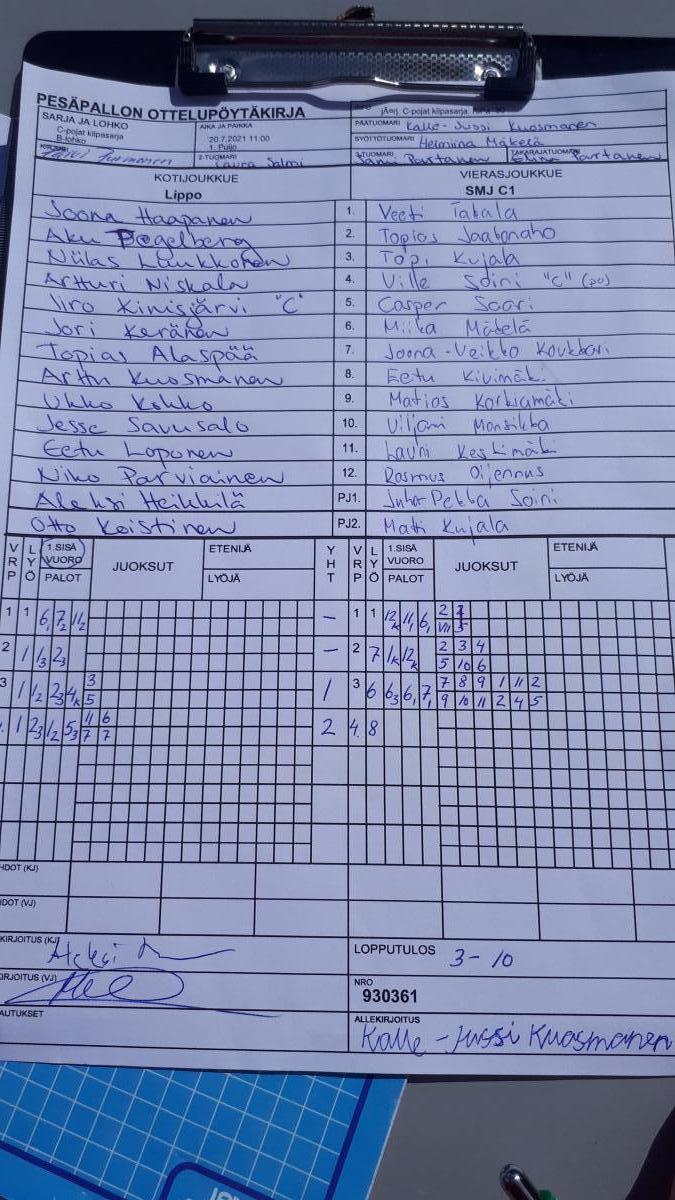 PESÄPALLON OTTELUPÖYTÄKIRJA
SARJA JA LOHKO
C-pojat kilpasarja
B-lohko
AIKA JA PAIKKA
20.7.2021 11:00
1. Puijo
jÄorj. C-pojat kilpasarja.
PÄÄTUOMARI Kalle-Jussi Kuosmanen
SYÖTTÖTUOMARI Hermiina Mäkelä
2-TUOMARI Laura Salmi
3-TUOMARI Partanen
TAKARAJATUOMARI Partanen
KOTIJOUKKUE
Lippo
VIERASJOUKKUE
SMJ C1
Joona Haapanen 1. Veeti Takala
Aku 2. Topias
Niilas Laukkonen 3. Topi Kujala
Artturi Niskala 4. Ville Soini "C" (pu)
Iiro Kinisjärvi "C" 5. Casper Saari
Jori Keränen 6. Miika Mäkelä
Topias Alaspää 7. Joona-Veikko
Arttu Kuosmanen 8. Eetu Kivimäki
Ukko Kokko 9. Matias Korkiamäki
Jesse Savusalo 10. Viljami Mansikka
Eetu Loponen 11. Lauri Keskimäki
Niko Parviainen 12. Rasmus Oijennus
Aleksi Heikkilä PJ1. Juha-Pekka Soini
Otto Koistinen PJ2. Matti Kujala
VRP LYÖ 1.SISÄ VUORO PALOT JUOKSUT ETENIJÄ LYÖJÄ YHT VRP LYÖ 1.SISÄ VUORO PALOT JUOKSUT ETENIJÄ LYÖJÄ
1 1 6, 7₂ 11₂ – 1 1 12ₖ 11, 6,
2 1 1₃ 2₃ – 2 7 1ₖ 12ₖ 2 3 4
5 10 6
3 1 1₂ 2₃ 4ₖ 3 1 3 6 6₃ 6, 7, 7 8 9 1 11 2
5 9 10 11 2 4 5
1 2₃ 1₂ 5₃ 11 6 2 4. 8
7 7
HDOT (KJ)
HDOT (VJ)
KIRJOITUS (KJ) Aleksi
KIRJOITUS (VJ)
AUTUKSET
LOPPUTULOS 3-10
NRO
930361
ALLEKIRJOITUS
Kalle-Jussi Kuosmanen